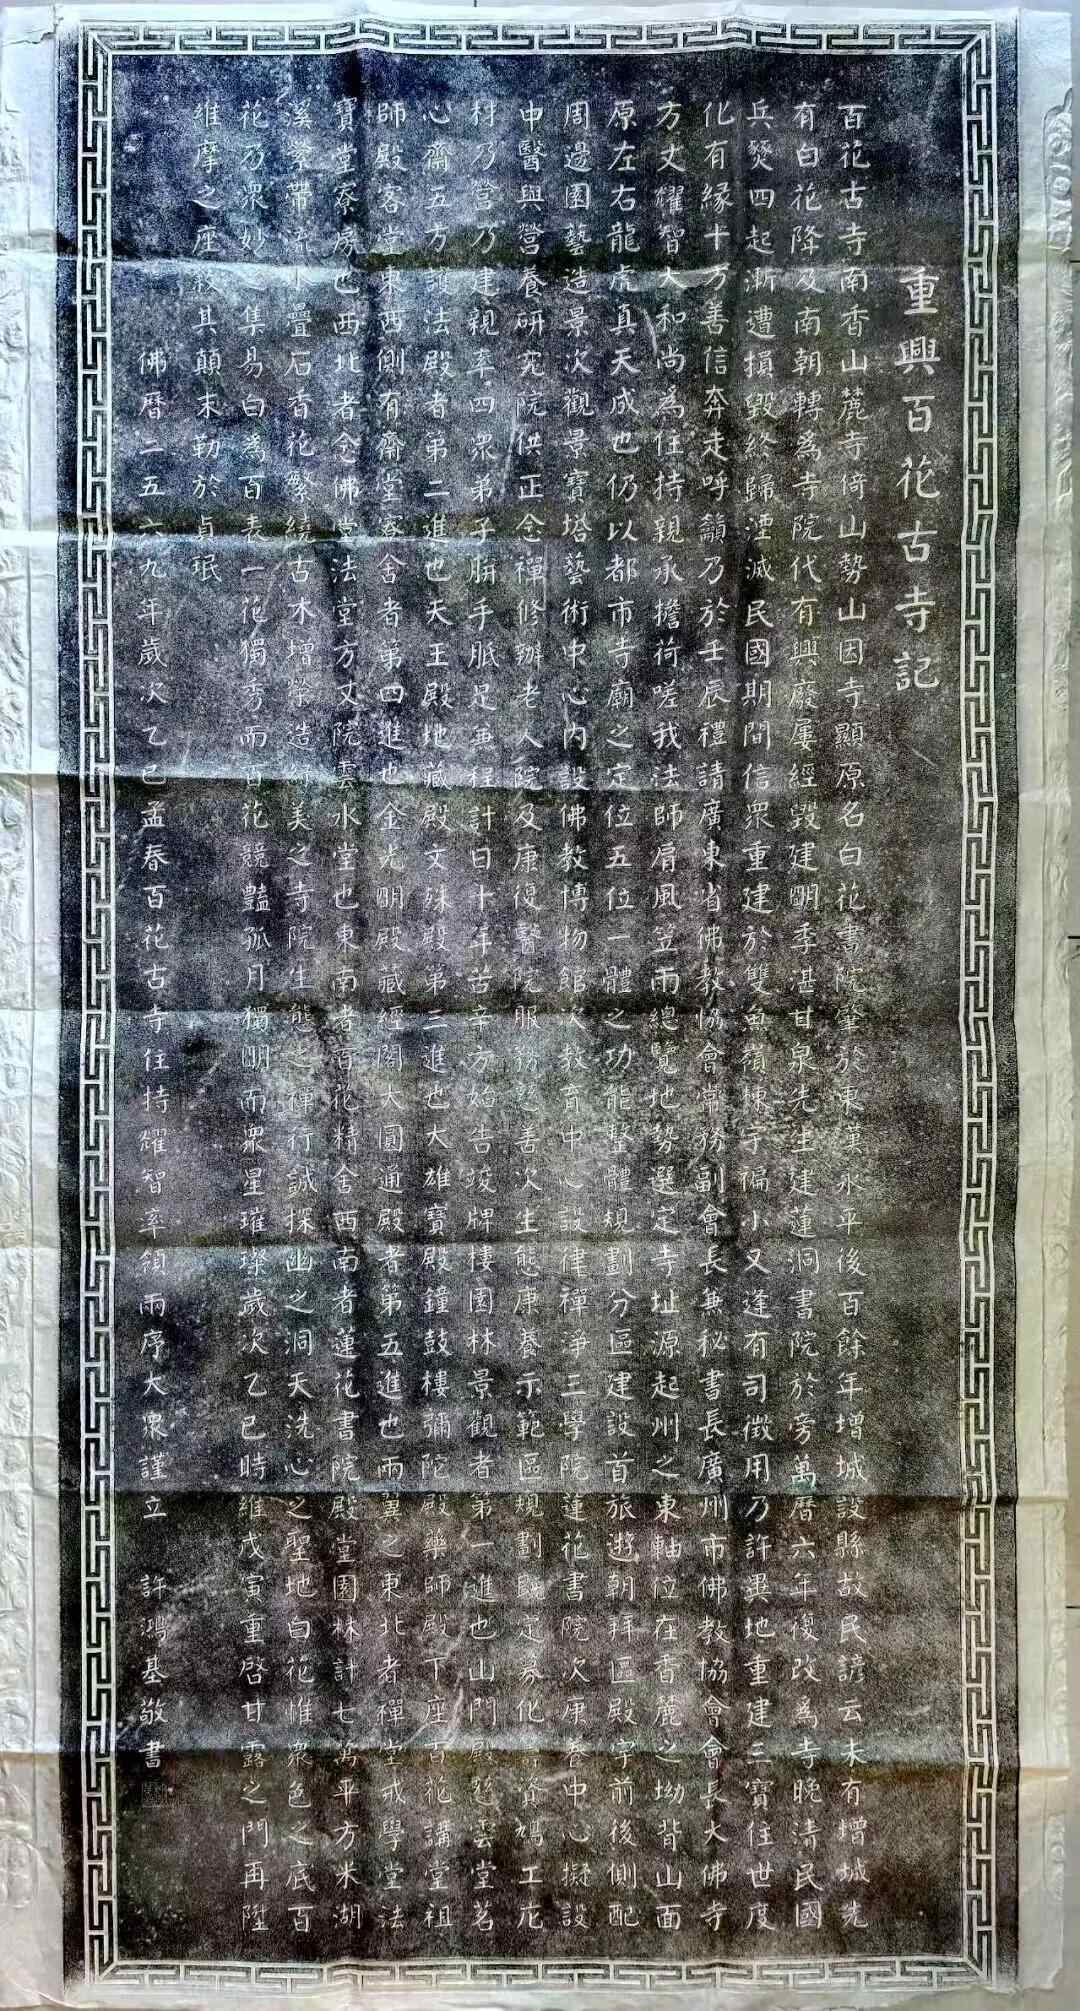 重興百花古寺記
百花古寺南香山麓寺倚山勢山因寺顯原名白花書院肇於東漢永平後百餘年增城設縣故民諺云未有增城先
有白花降及南朝轉爲寺院代有興廢屢經毀建明季湛甘泉先生建蓮洞書院於旁萬曆六年復改爲寺晚清民國
兵燹四起漸遭損毀終歸湮滅民國期間信眾重建於雙魚嶺棟宇褊小又逢有司徵用乃許異地重建三寶住世度
化有緣十方善信奔走呼籲乃於壬辰禮請廣東省佛教協會常務副會長兼秘書長廣州市佛教協會會長大佛寺
方丈耀智大和尚爲住持親承擔荷嗟我法師肩風笠雨總覽地勢選定寺址源起州之東軸位在香麓之坳背山面
原左右龍虎真天成也仍以都市寺廟之定位五位一體之功能整體規劃分區建設首旅遊朝拜區殿宇前後側配
周邊園藝造景次觀景寶塔藝術中心內設佛教博物館次教育中心設律禪淨三學院蓮花書院次康養中心擬設
中醫與營養研究院供正念禪修辦老人院及康復醫院服務慈善次生態康養示範區規劃既定募化善資鳩工庀
材乃營乃建親率四衆弟子胼手胝足兼程計日十年苦辛方始告竣牌樓園林景觀者第一進也山門殿慈雲堂茗
心齋五方護法殿者第二進也天王殿地藏殿文殊殿第三進也大雄寶殿鐘鼓樓彌陀殿藥師殿下座百花講堂祖
師殿客堂東西側有齋堂寮舍者第四進也金光明殿藏經閣大圓通殿者第五進也兩翼之東北者禪堂戒學堂法
寶堂寮房也西北者念佛堂法堂方丈院雲水堂也東南者百花精舍西南者蓮花書院殿堂園林計七萬平方米湖
溪縈帶流水疊石香花繁繞古木增榮造 美之寺院生態之禪行誠探幽之洞天洗心之聖地白花惟衆色之底百
花乃衆妙之集易白爲百表一花獨秀而百花競豔孤月獨明而衆星璀璨歲次乙巳時維戊寅重啓甘露之門再陞
維摩之座敍其顛末勒於貞珉
佛曆二五六九年歲次乙巳孟春百花古寺住持耀智率領兩序大衆謹立 許鴻基敬書